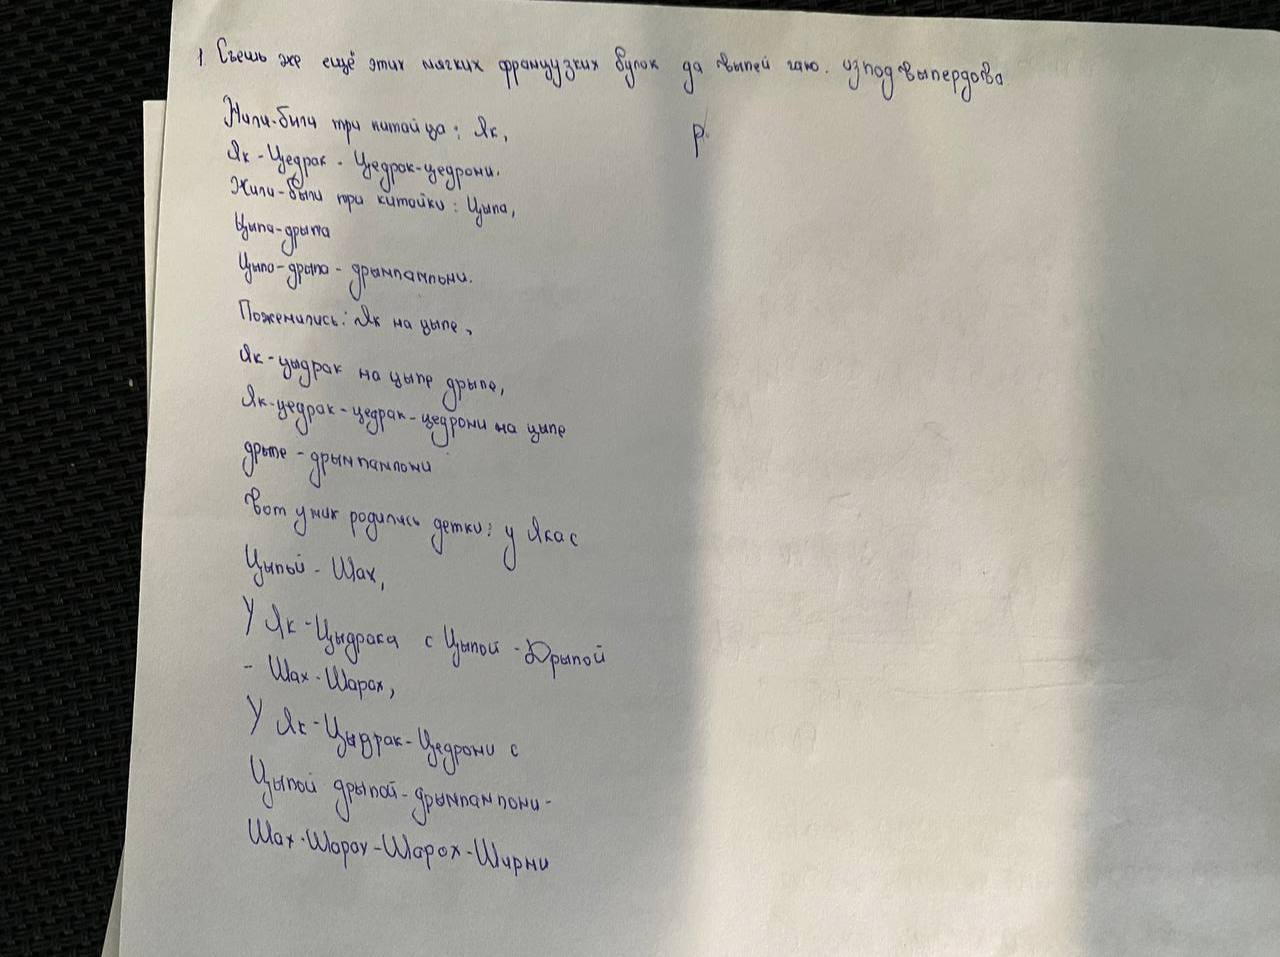 1. Съешь же ещё этих мягких французких булок да выпей чаю. изподвыпердова
Жили-били три китайца: Як,
р.
Як-Цедрак - Цедрок-цедрони.
Жили-были три китайки: Цыпа,
Цыпа-дрыпа
Цыпо-дрыпо-дрымпампони.
Поженились: Як на цыпе,
Як-цыдрак на цыпе дрыпе,
Як-цедрак-цедрак-цедрони на ципе
дрыпе-дрымпампони
Вот у них родились детки: у Яка с
Цыпой - Шах,
У Як-Цыдрака с Цыпой-Дрыпой
- Шах-Шарах,
У Як-Цыдрак-Цедрони с
Цыпой дрыпой-дрымпампони-
Шах-Шарах-Шарох-Ширни